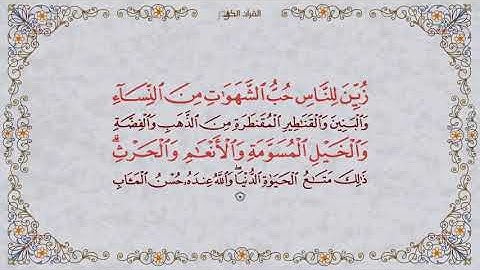 القرآن الكريم
زُيِّنَ لِلنَّاسِ حُبُّ ٱلشَّهَوَٰتِ مِنَ ٱلنِّسَآءِ
وَٱلْبَنِينَ وَٱلْقَنَٰطِيرِ ٱلْمُقَنطَرَةِ مِنَ ٱلذَّهَبِ وَٱلْفِضَّةِ
وَٱلْخَيْلِ ٱلْمُسَوَّمَةِ وَٱلْأَنْعَٰمِ وَٱلْحَرْثِ ۗ
ذَٰلِكَ مَتَٰعُ ٱلْحَيَوٰةِ ٱلدُّنْيَا ۖ وَٱللَّهُ عِندَهُۥ حُسْنُ ٱلْمَـَٔابِ